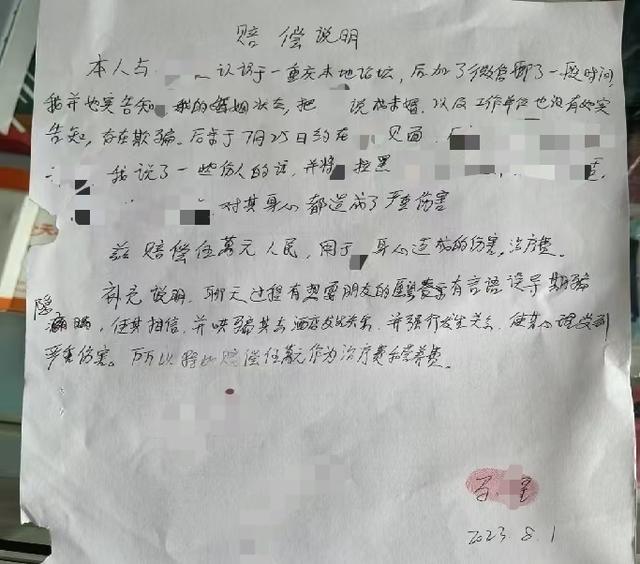 赔偿说明
本人与 认识于一重庆本地论坛，后加了微信聊了一段时间，
我并如实告知 我的婚姻状态，把 说成未婚。以及工作单位也没有如实
告知，存在欺骗。后来于7月25日约在 见面，
我说了一些伤人的话，并将 拉黑
对其身心都造成了严重伤害
兹赔偿伍萬元人民，用于 身心造成的伤害，治疗费。
补充说明，聊天过程有想要朋友的 有言语误导欺骗
隐瞒，使其相信，并哄骗其去酒店发生关系，并强行发生关系，使其心理受到
严重伤害。所以 赔偿伍萬元作为治疗费和营养费。
2023.8.1